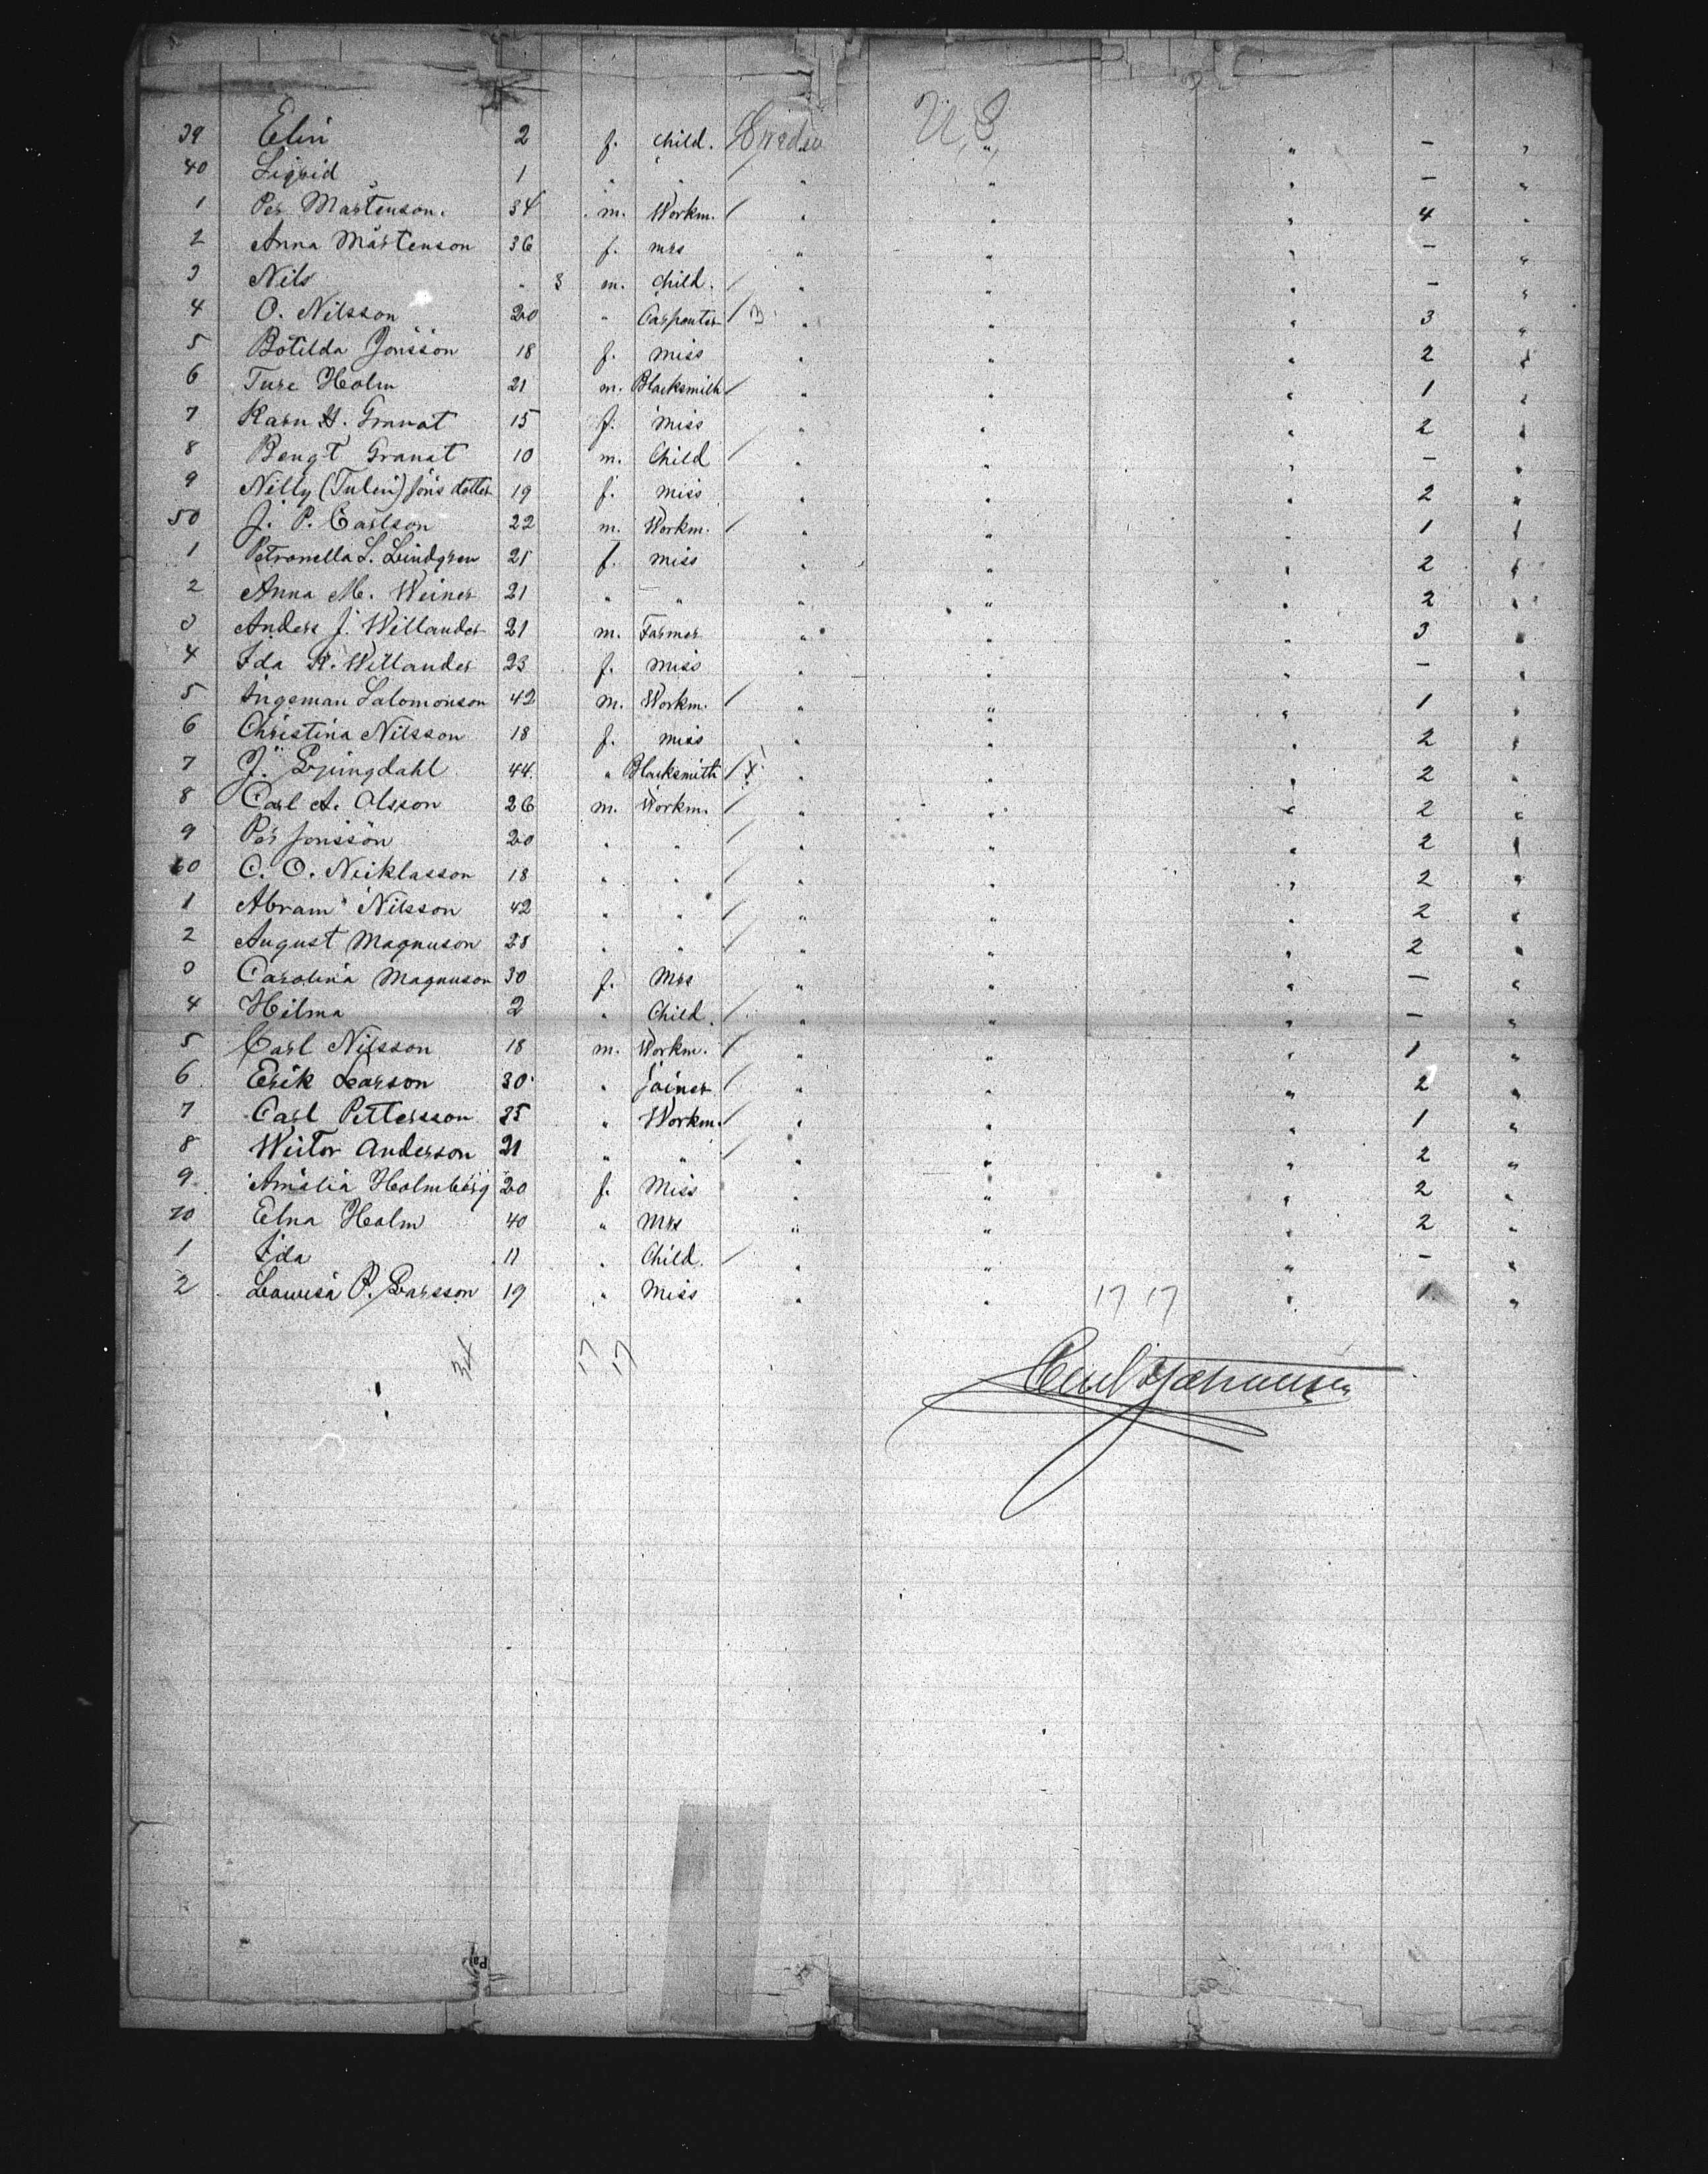 39 Elin 2 f. Child. Sweden U.S. " - "
40 Sigrid 1 " " " " " - "
1 Per Mårtenson. 34 m. Workm. / " " " 4 "
2 Anna Mårtenson 36 f. mrs " " " - "
3 Nils " 3 m. Child. / " " " - "
4 O. Nilsson 20 " Carpenter / 3 " " " 3 "
5 Botilda Jonsson 18 f. miss " " " 2 "
6 Ture Holm 21 m. Blacksmith / " " " 1 "
7 Karn H. Granat 15 f. miss " " " 2 "
8 Bengt Granat 10 m. Child / " " " - "
9 Nilly (Tulin) Jöns dotter 19 f. miss " " " 2 "
50 J. P. Carlson 22 m. Workm. / " " " 1 "
1 Petronella L. Lindgren 21 f. miss " " " 2 "
2 Anna M. Weiner 21 " " " " " 2 "
3 Anders J. Willander 21 m. Farmer " " " 3 "
4 Ida K. Willander 23 f. miss " " " - "
5 Ingeman Salomonson 42 m. Workm. / " " " 1 "
6 Christina Nilsson 18 f. miss " " " 2 "
7 J. Ljungdahl 44 " Blacksmith / x " " " 2 "
8 Carl A. Olsson 26 m. Workm. / " " " 2 "
9 Per Jonsson 20 " " / " " " 2 "
60 C. O. Nicklasson 18 " " / " " " 2 "
1 Abram Nilsson 42 " " / " " " 2 "
2 August Magnuson 28 " " / " " " 2 "
3 Carolina Magnuson 30 f. Mrs " " " - "
4 Hilma 2 " Child. / " " " - "
5 Carl Nilsson 18 m. Workm. / " " " 1 "
6 Erik Larson 30 " joiner / " " " 2 "
7 Carl Pettersson 25 " Workm. / " " " 1 "
8 Wictor Anderson 21 " " / " " " 2 "
9 Amalia Holmberg 20 f. Miss " " " 2 "
70 Elna Holm 40 " Mrs " " " 2 "
1 Ida 11 " Child. / " " " - "
2 Lowisa P. Larsson 19 " Miss " " 17 17 " 1 "
34 17 17